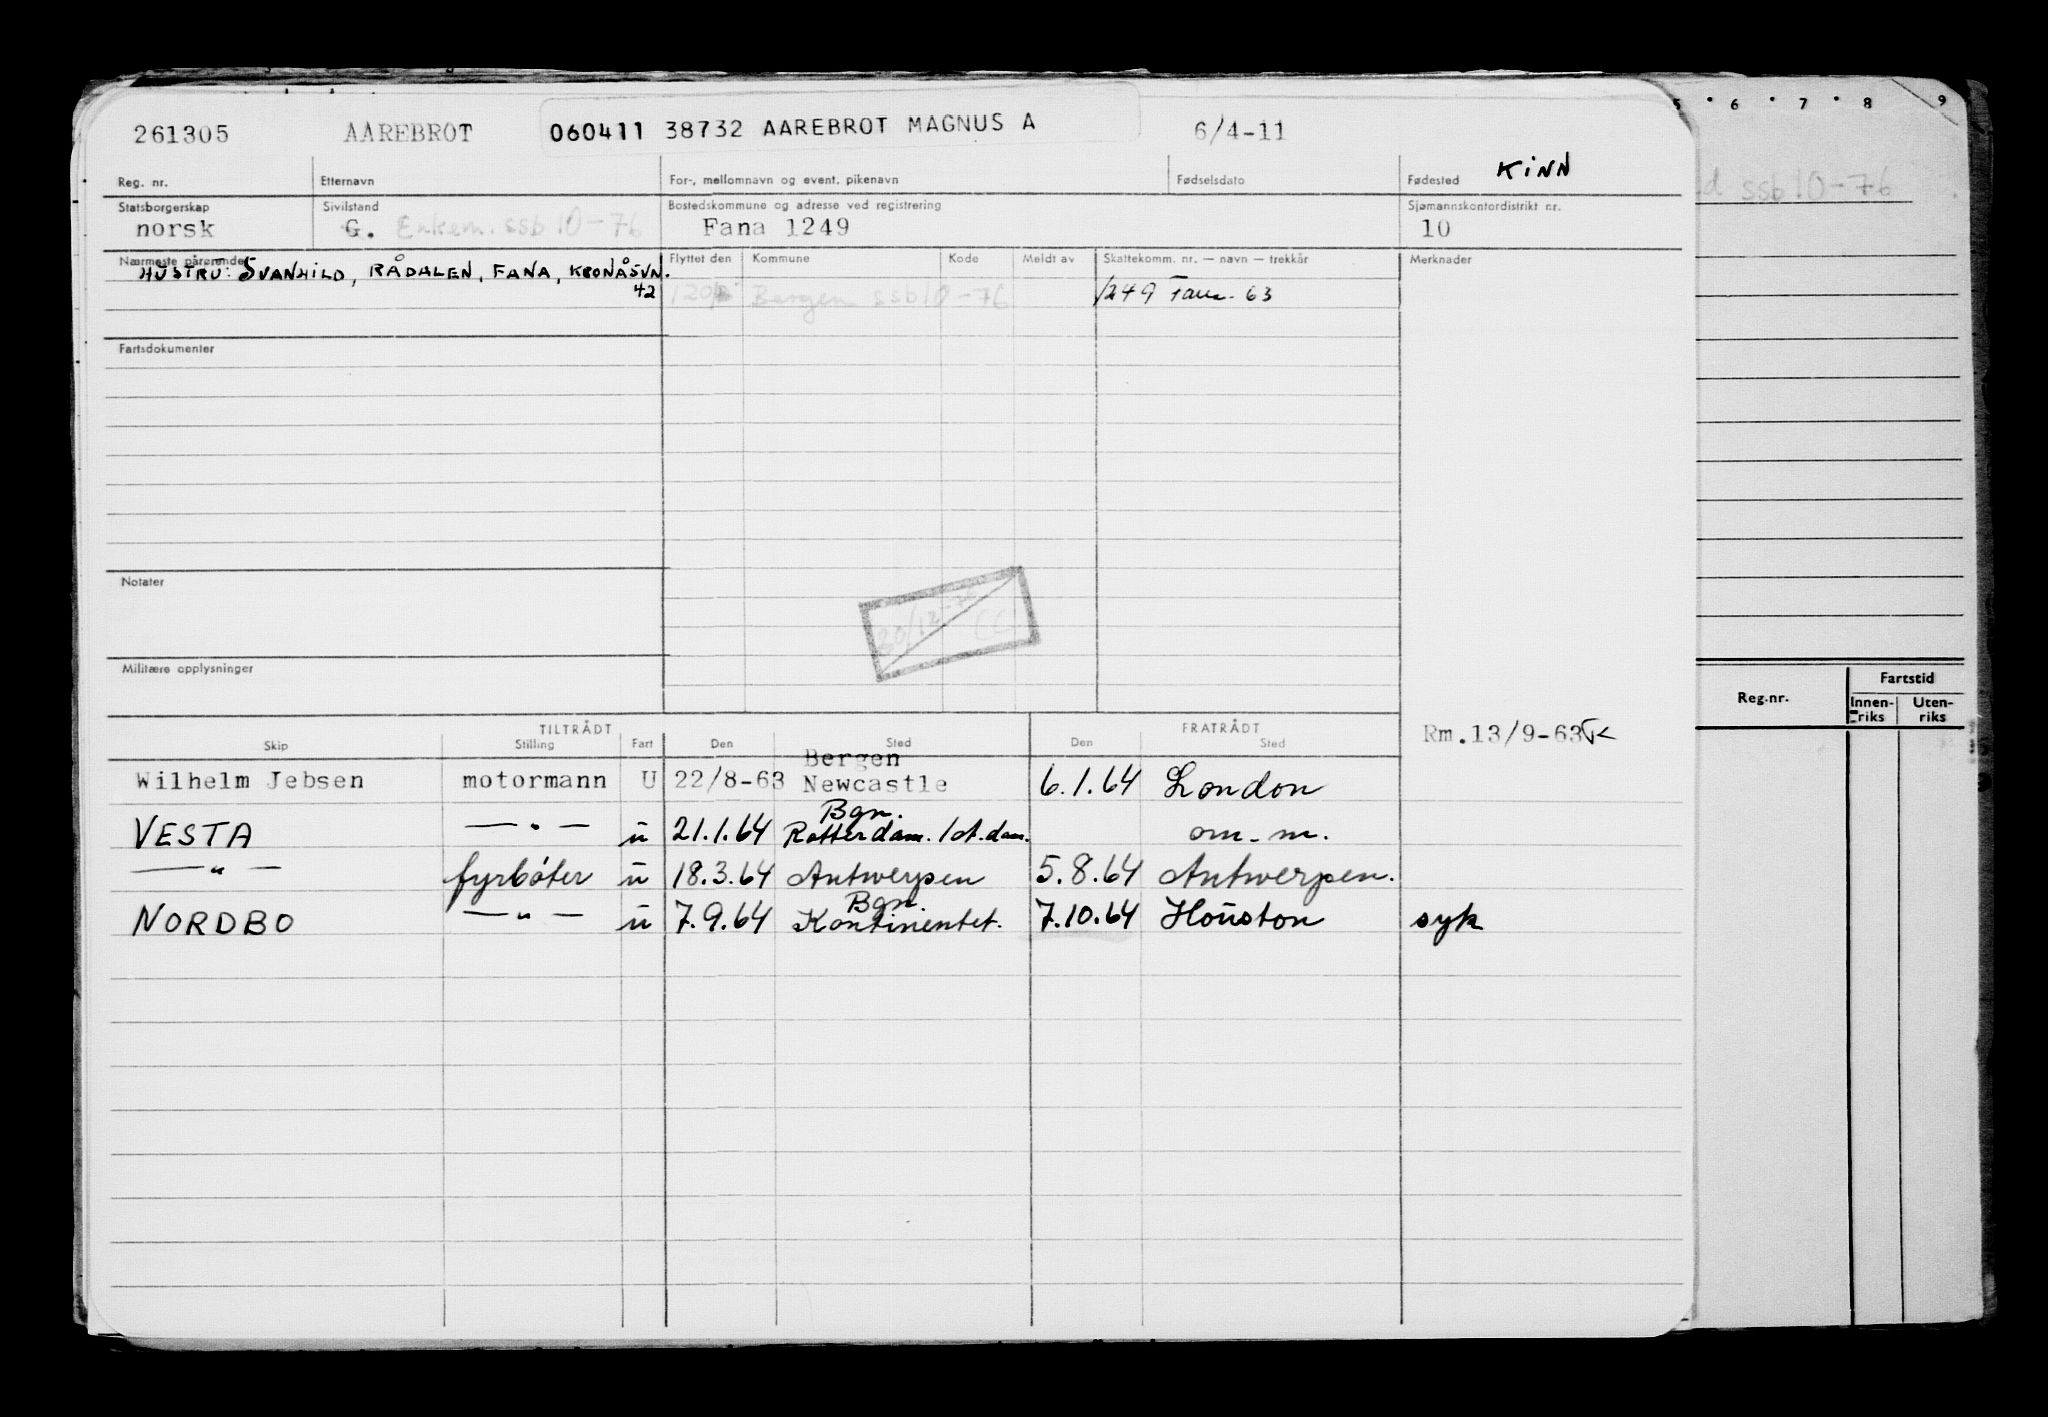 5 • 6 • 7 • 8 9
261305 AAREBROT 060411 38732 AAREBROT MAGNUS A 6/4-11
KINN
Reg. nr. Etternavn For-, mellomnavn og event. pikenavn Fødselsdato Fødested
ssb 10-76
Statsborgerskap Sivilstand Bostedskommune og adresse ved registrering Sjømannskontordistrikt nr.
norsk G. Enkem. ssb 10-76 Fana 1249 10
Nærmeste pårørende Flyttet den Kommune Kode Meldt av Skattekomm. nr. — navn — trekkår Merknader
HUSTRU: SVANHILD, RÅDALEN, FANA, KRONÅSVN.
42 Bergen ssb 10-76 1249 Fana - 63
Fartsdokumenter
Notater
20/12-76
Militære opplysninger
Reg.nr. Fartstid
Innen-riks Uten-riks
TILTRÅDT FRATRÅDT
Rm.13/9-63
Skip Stilling Fart Den Sted Den Sted
Bergen
Wilhelm Jebsen motormann U 22/8-63 Newcastle 6.1.64 London
Bgn.
VESTA — " — u 21.1.64 Rotterdam. / A.dam. om. m.
— " — fyrbøter u 18.3.64 Antwerpen 5.8.64 Antwerpen.
Bgn.
NORDBO — " — u 7.9.64 Kontinentet. 7.10.64 Houston syk